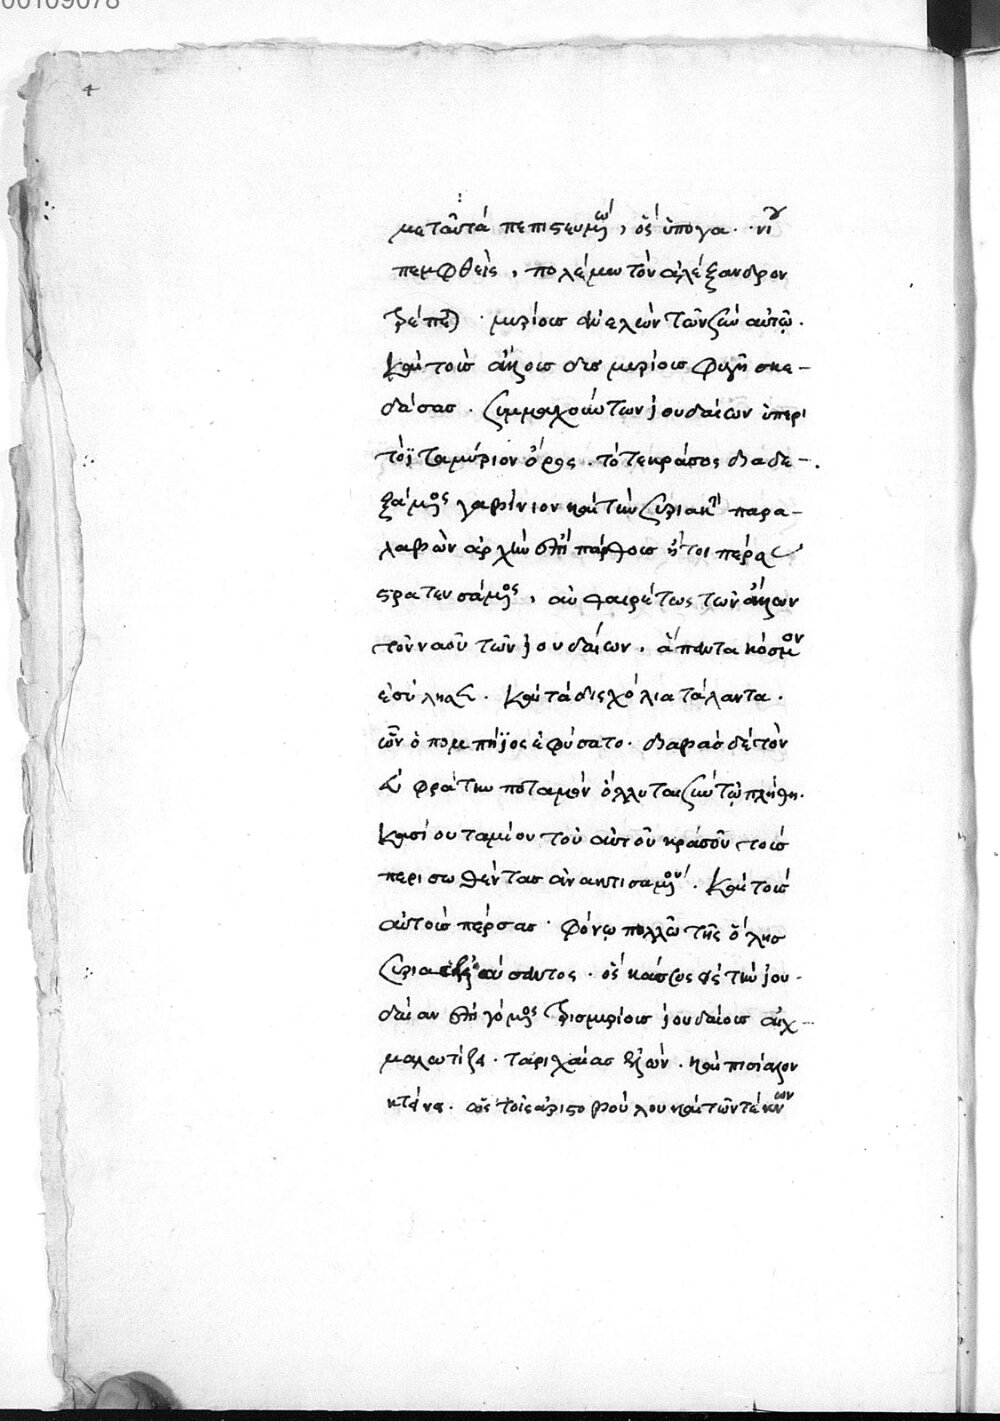 00109078
4
μεταῦτά πεπιστευμένων, ὃς ὑπὸ γα..νίου
πεμφθεὶς, πολέμω τὸν ἀλέξανδρον
τρέπεται. μυρίοις ἀνελὼν τῶν σὺν αὐτῷ.
καὶ τοὺς ἄλλους δις μυρίοις φυγῆ σκε-
δάσας. συμμαχούντων ἰουδαίων ὑπερὶ
τόϊταμύριον ὄρος. τότε κράσος διαδε-
ξάμενος γαβίνιον καὶ τὴν συριακὴν παρα-
λαβὼν ἀρχὴν ἐπὶ πάρθοις ἤτοι πέρας
στρατευσάμενος, αὐθαιρέτως τῶν ἄλλων
τοῦ ναοῦ τῶν ἰουδαίων, ἅπαντα κόσμον
ἐσύλησε. καὶ τὰ δισχόλια τάλαντα.
ὧν ὁ πομπήϊος ἐφύσατο. διαβὰς δὲ τὸν
εὐφράτην ποταμὸν ὄλλυται σὺν τῷ πλήθη.
κασίου ταμίου τοῦ αὐτοῦ κράσου τοὺς
περισωθέντας ἀνακτισαμένου. καὶ τοὺς
αὐτοὺς πέρσας φόνῳ πολλῶ τῆς ὅλης
συρίας παύσαντος. ὃς κάσσιος εἰς τὴν ἰου-
δαίαν ἐπηγόμενος τρισμυρίοις ἰουδαίοις αἰχ-
μαλωτίζει. ταριχαίας ἑλών. καὶ πισίαλον
κτείνει. ὡς τοῖς ἀριστοβούλου καὶ τῶν τέκνων